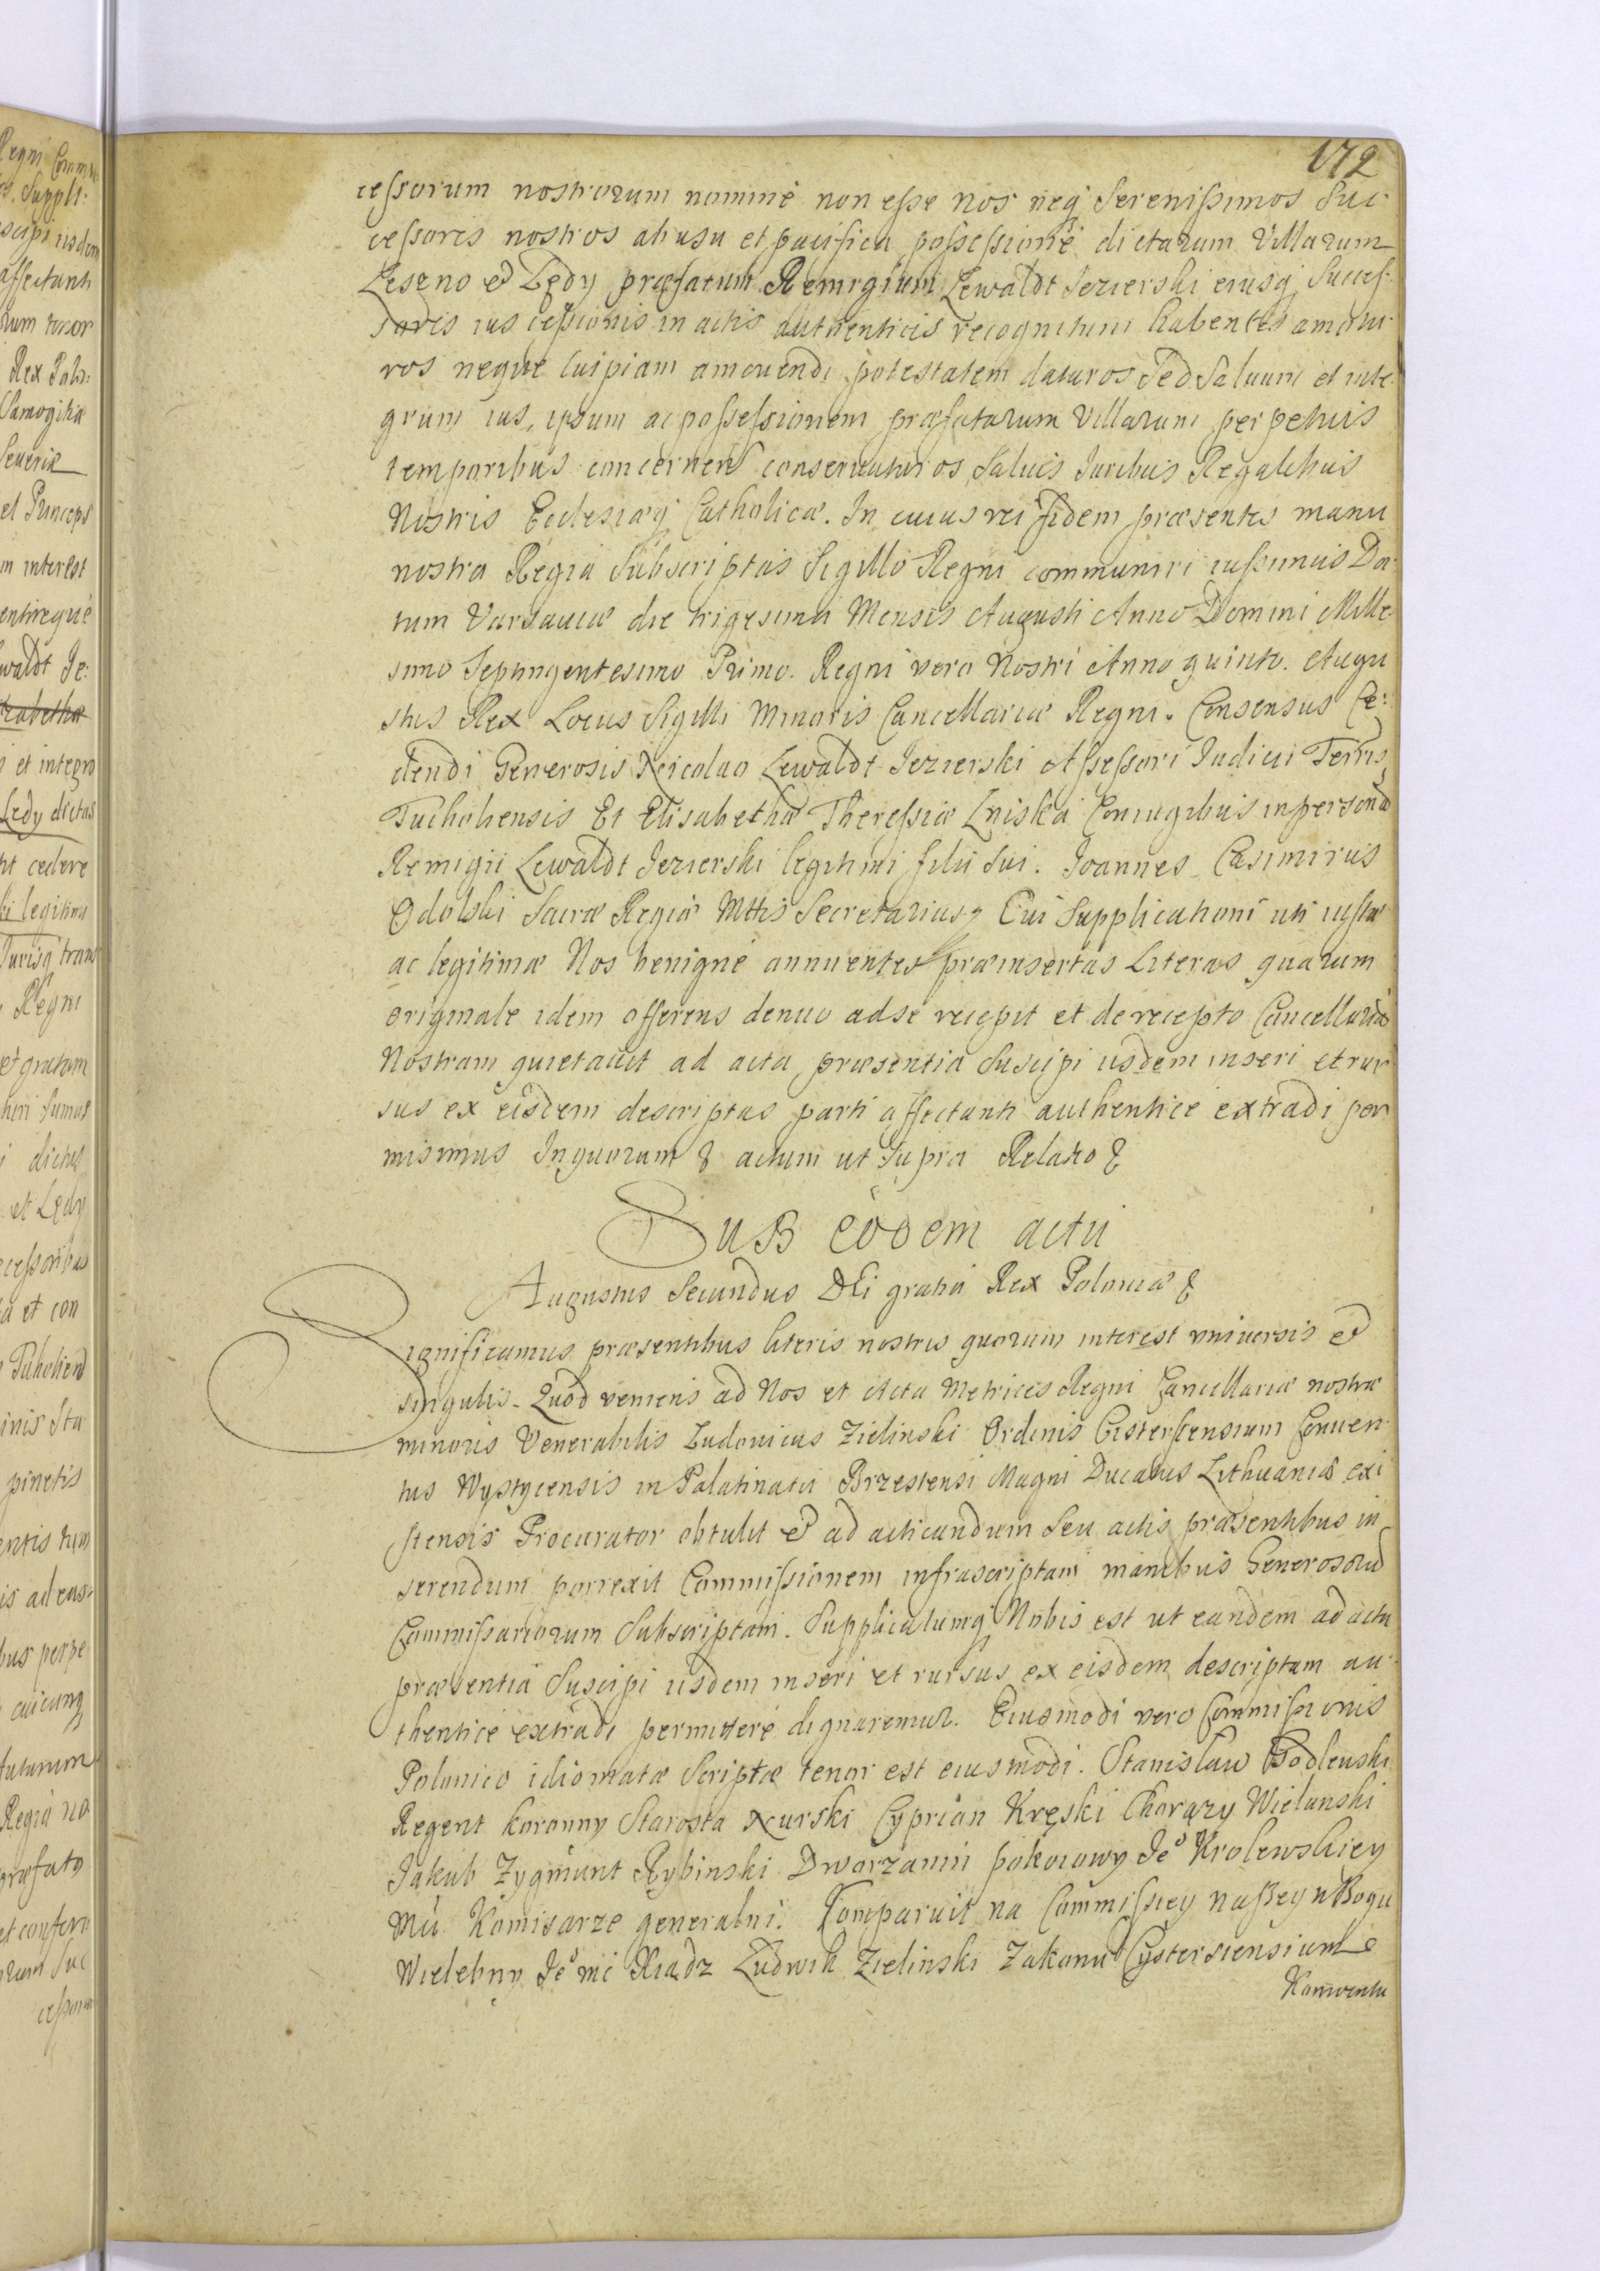 172
cessorum nostrorum nominé non esse nos neq Serenissimos Suc-
cessoris nostros ab usu et pacifica possessioné dictarum Villarum
Leseno et Lędy præfatum Remigium Lewaldt Jezierski eiusq Succes-
soris ius cessionis in actis authenticis recognitum habentes amotu-
ros neque cuipiam amovendi potestatem daturos Sed Salvum et inte-
grum ius, ipsum ac possessionem præfatarum Villarum perpetuis
temporibus concernen conservaturos Salvis Juribus Regalibus
Nostris Ecclesiæq Catholicæ. In cuius rei fidem præsentes manu
nostra Regia Subscriptas Sigillo Regni communiri iussimus Da-
tum Varsaviæ die trigesima Mensis Augusti Anno Domini Mille-
simo Septingentesimo Primo. Regni vero Nostri Anno quinto. Augu
stus Rex Locus Sigilli Minoris Cancellariæ Regni. Consensus Ce-
dendi Generosis Nicolao Lewaldt Jezierski Assessori Judicii Terris
Tucholiensis Et Elisabethæ Theressiæ Lniska Coniugibus in personã
Remigii Lewaldt Jezierski legitimi filii Sui. Joannes Casimirus
Odolski Sacræ Regiæ Mttis Secretarius, Cui Supplicationi uti iustæ
ac legitimæ Nos benigné annuentes præinsertas Literas quarum
originale idem offerens denuo ad se recepit et de recepto Cancellariã
Nostram quietavit ad acta præsentia Suscipi iisdem inseri et rur
sus ex eisdem descriptas parti affectanti authenticé extradi per
misimus In quorum & actum ut Supra Relatio &
Sub eodem actu
Augustus Secundus Dei gratia Rex Poloniæ &
Significamus præsentibus literis nostris quorum interest universis et
singulis. Quod veniens ad Nos et Acta Metrices Regni Cancellariæ nostræ
minoris Venerabilis Ludovicus Zielinski Ordinis Cisterscensium Conven-
tus Wystycensis in Palatinatu Brzestensi Magni Ducatus Lithuaniæ exi
stensis Procurator obtulit et ad acticandum Seu actis præsentibus in
serendum porrexit Commissionem infrascriptam manibus Generosorũ
Commissariorum Subscriptam. Supplicatumq Nobis est ut eandem ad acta
præsentia Suscipi iisdem inseri et rursus ex eisdem descriptam au-
thenticé extradi permitteré dignaremur. Eiusmodi vero Commissionis
Polonico idiomatæ Scriptæ tenor est eiusmodi. Stanisław Godlewski
Regent koronny Starosta Nurski Cyprian Kręski Chorązy Wielunski
Jakub Zygmunt Rybinski Dworzanin pokoiowy Jeº Krolewskiey
Mći Komisarze generalni. Comparuit na Commissiey naszey w Bogu
Wielebny Jeº mć Xiądz Ludwik Zielinski Zakonu Cystersiensium
Konwentu